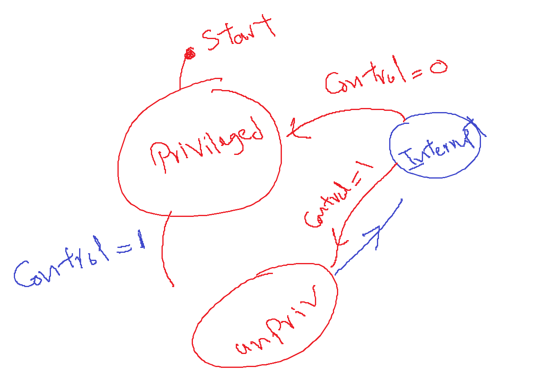 Start
Control = 0
Privilaged
Interrupt
Control = 1
Control = 1
unPriv